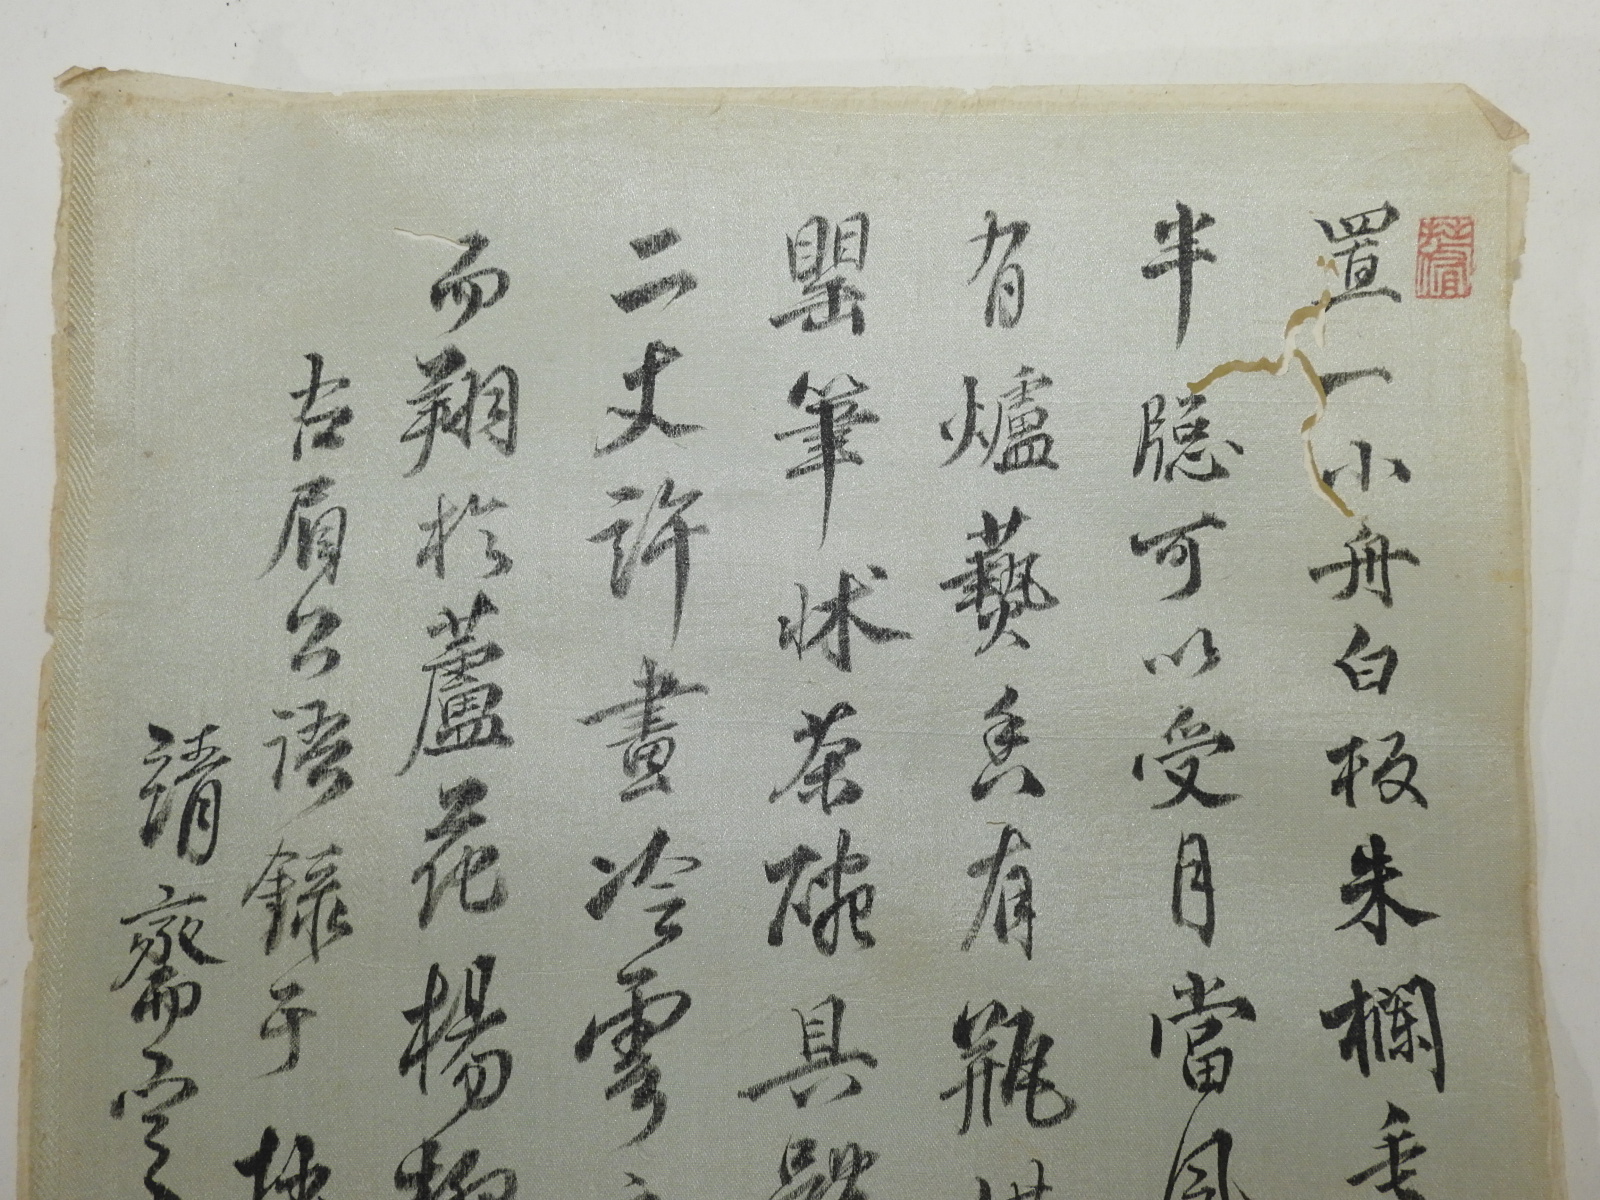 置一小舟白板朱欄垂
半隱可以受月當風
有爐爇香有瓶
罌筆床茶碗具
二丈許畫冷雲
而翔於蘆花楊柳
右眉公語錄于
請齋